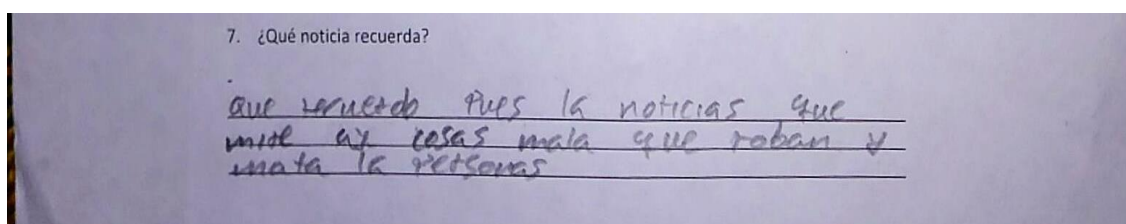 7. ¿Qué noticia recuerda?
que recuerdo pues la noticias que
mire ay cosas mala que roban y
mata la personas